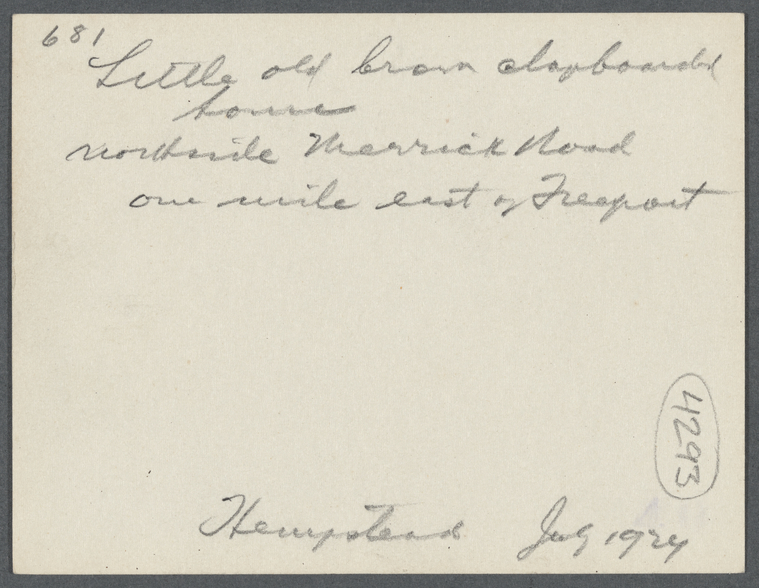 681
Little old brown clapboarded
house
northside Merrick Road
one mile east of Freeport
4293
Hempstead July 1924